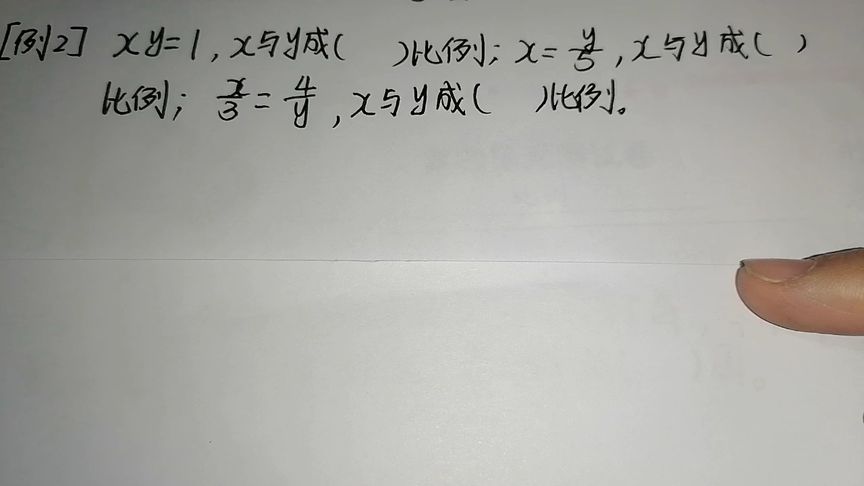 [例2] xy=1,x与y成( )比例;x=y/5,x与y成( )
比例;x/3=4/y,x与y成( )比例。